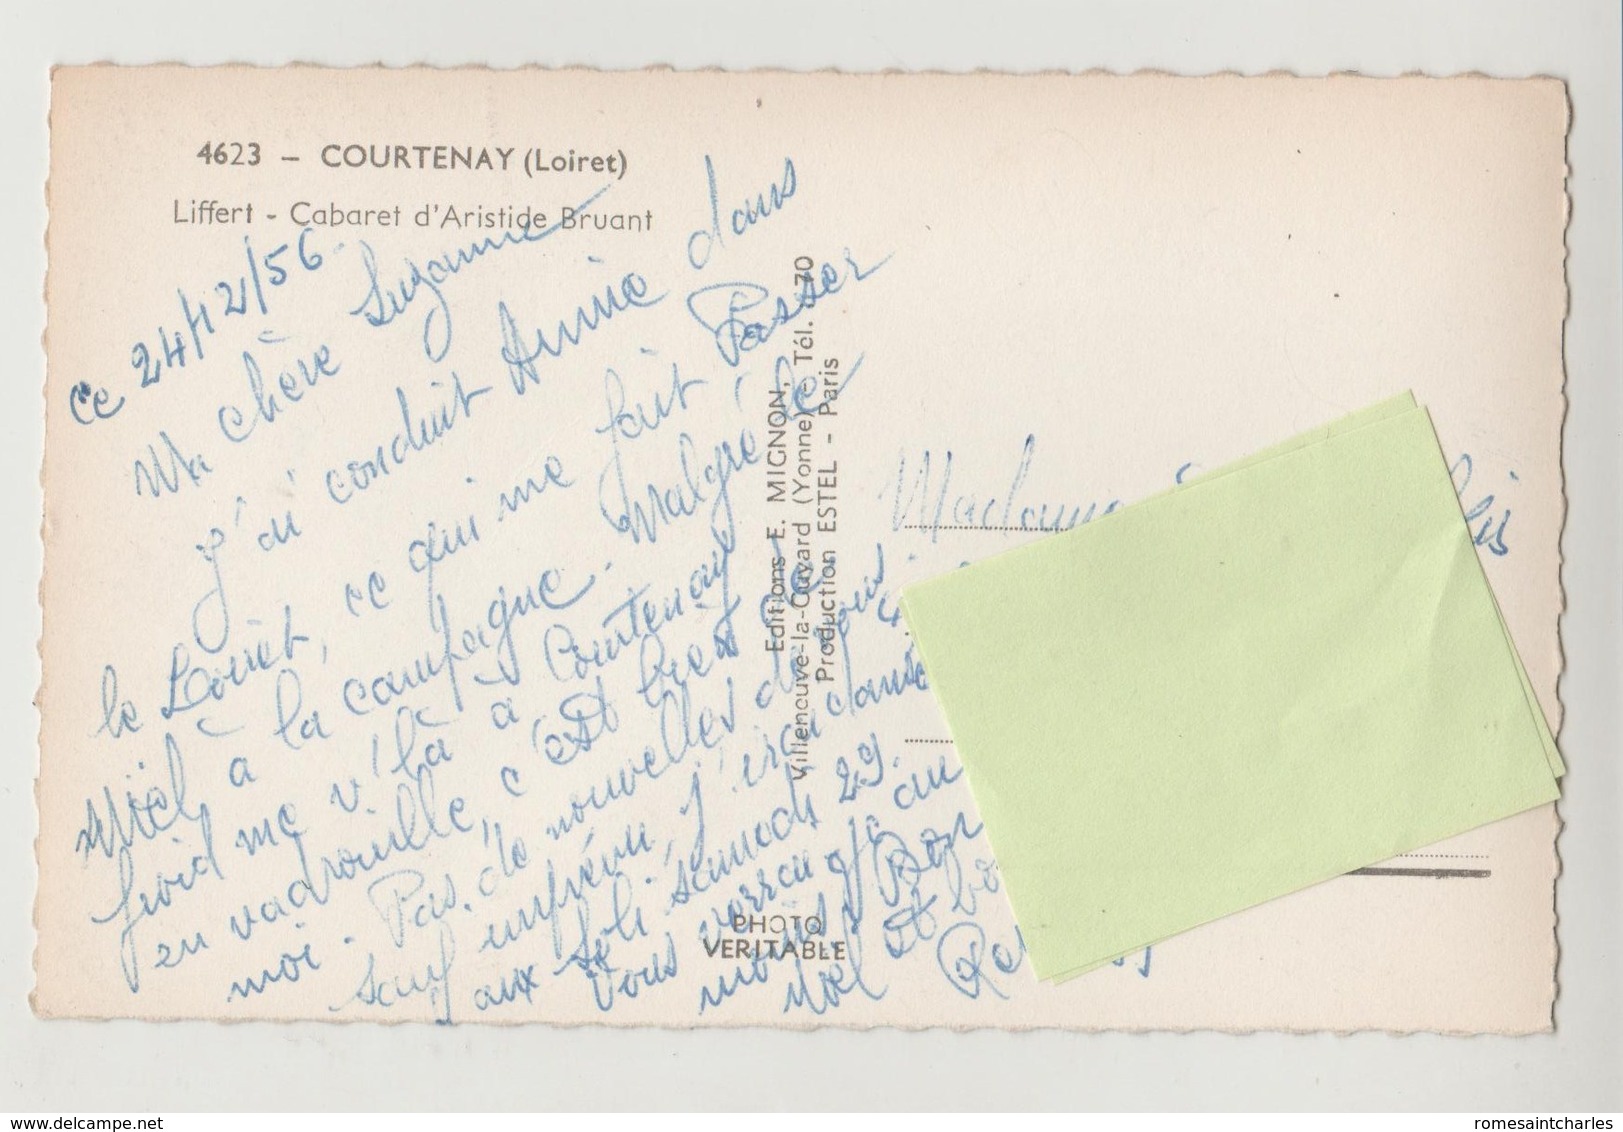 4623 – COURTENAY (Loiret)
Liffert - Cabaret d'Aristide Bruant
ce 24/12/56.
Ma chère Suzanne
J'ai conduit Annie dans
le Loiret, ce qui me fait Passer
Noël à la campagne. Malgré le
froid me v'là à Courtenay
en vadrouille, c'est bien de
moi. Pas de nouvelles de vous
sauf imprévu, j'irai danser
aux samedi 29.
Vous verrai au
moins Bon
Noël et
Editions E. MIGNON,
Villeneuve-la-Guyard (Yonne) - Tél. 70
Production ESTEL - Paris
PHOTO
VERITABLE
Madame
www.delcampe.net
romesaintcharles